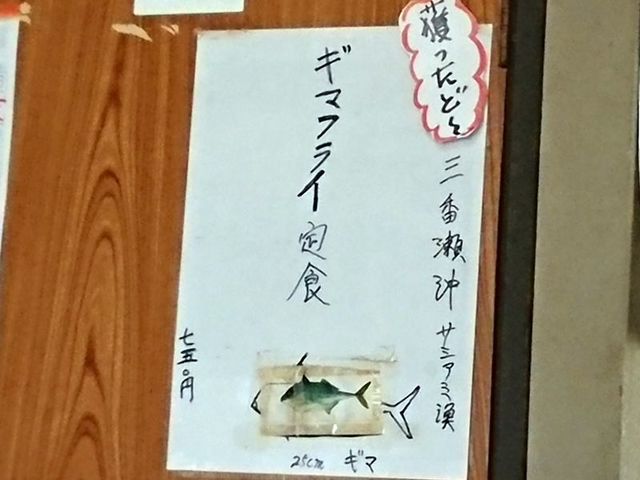 獲ったど〜
三番瀬沖 サシアミ漁
ギマフライ定食
七五〇円
25cm ギマ